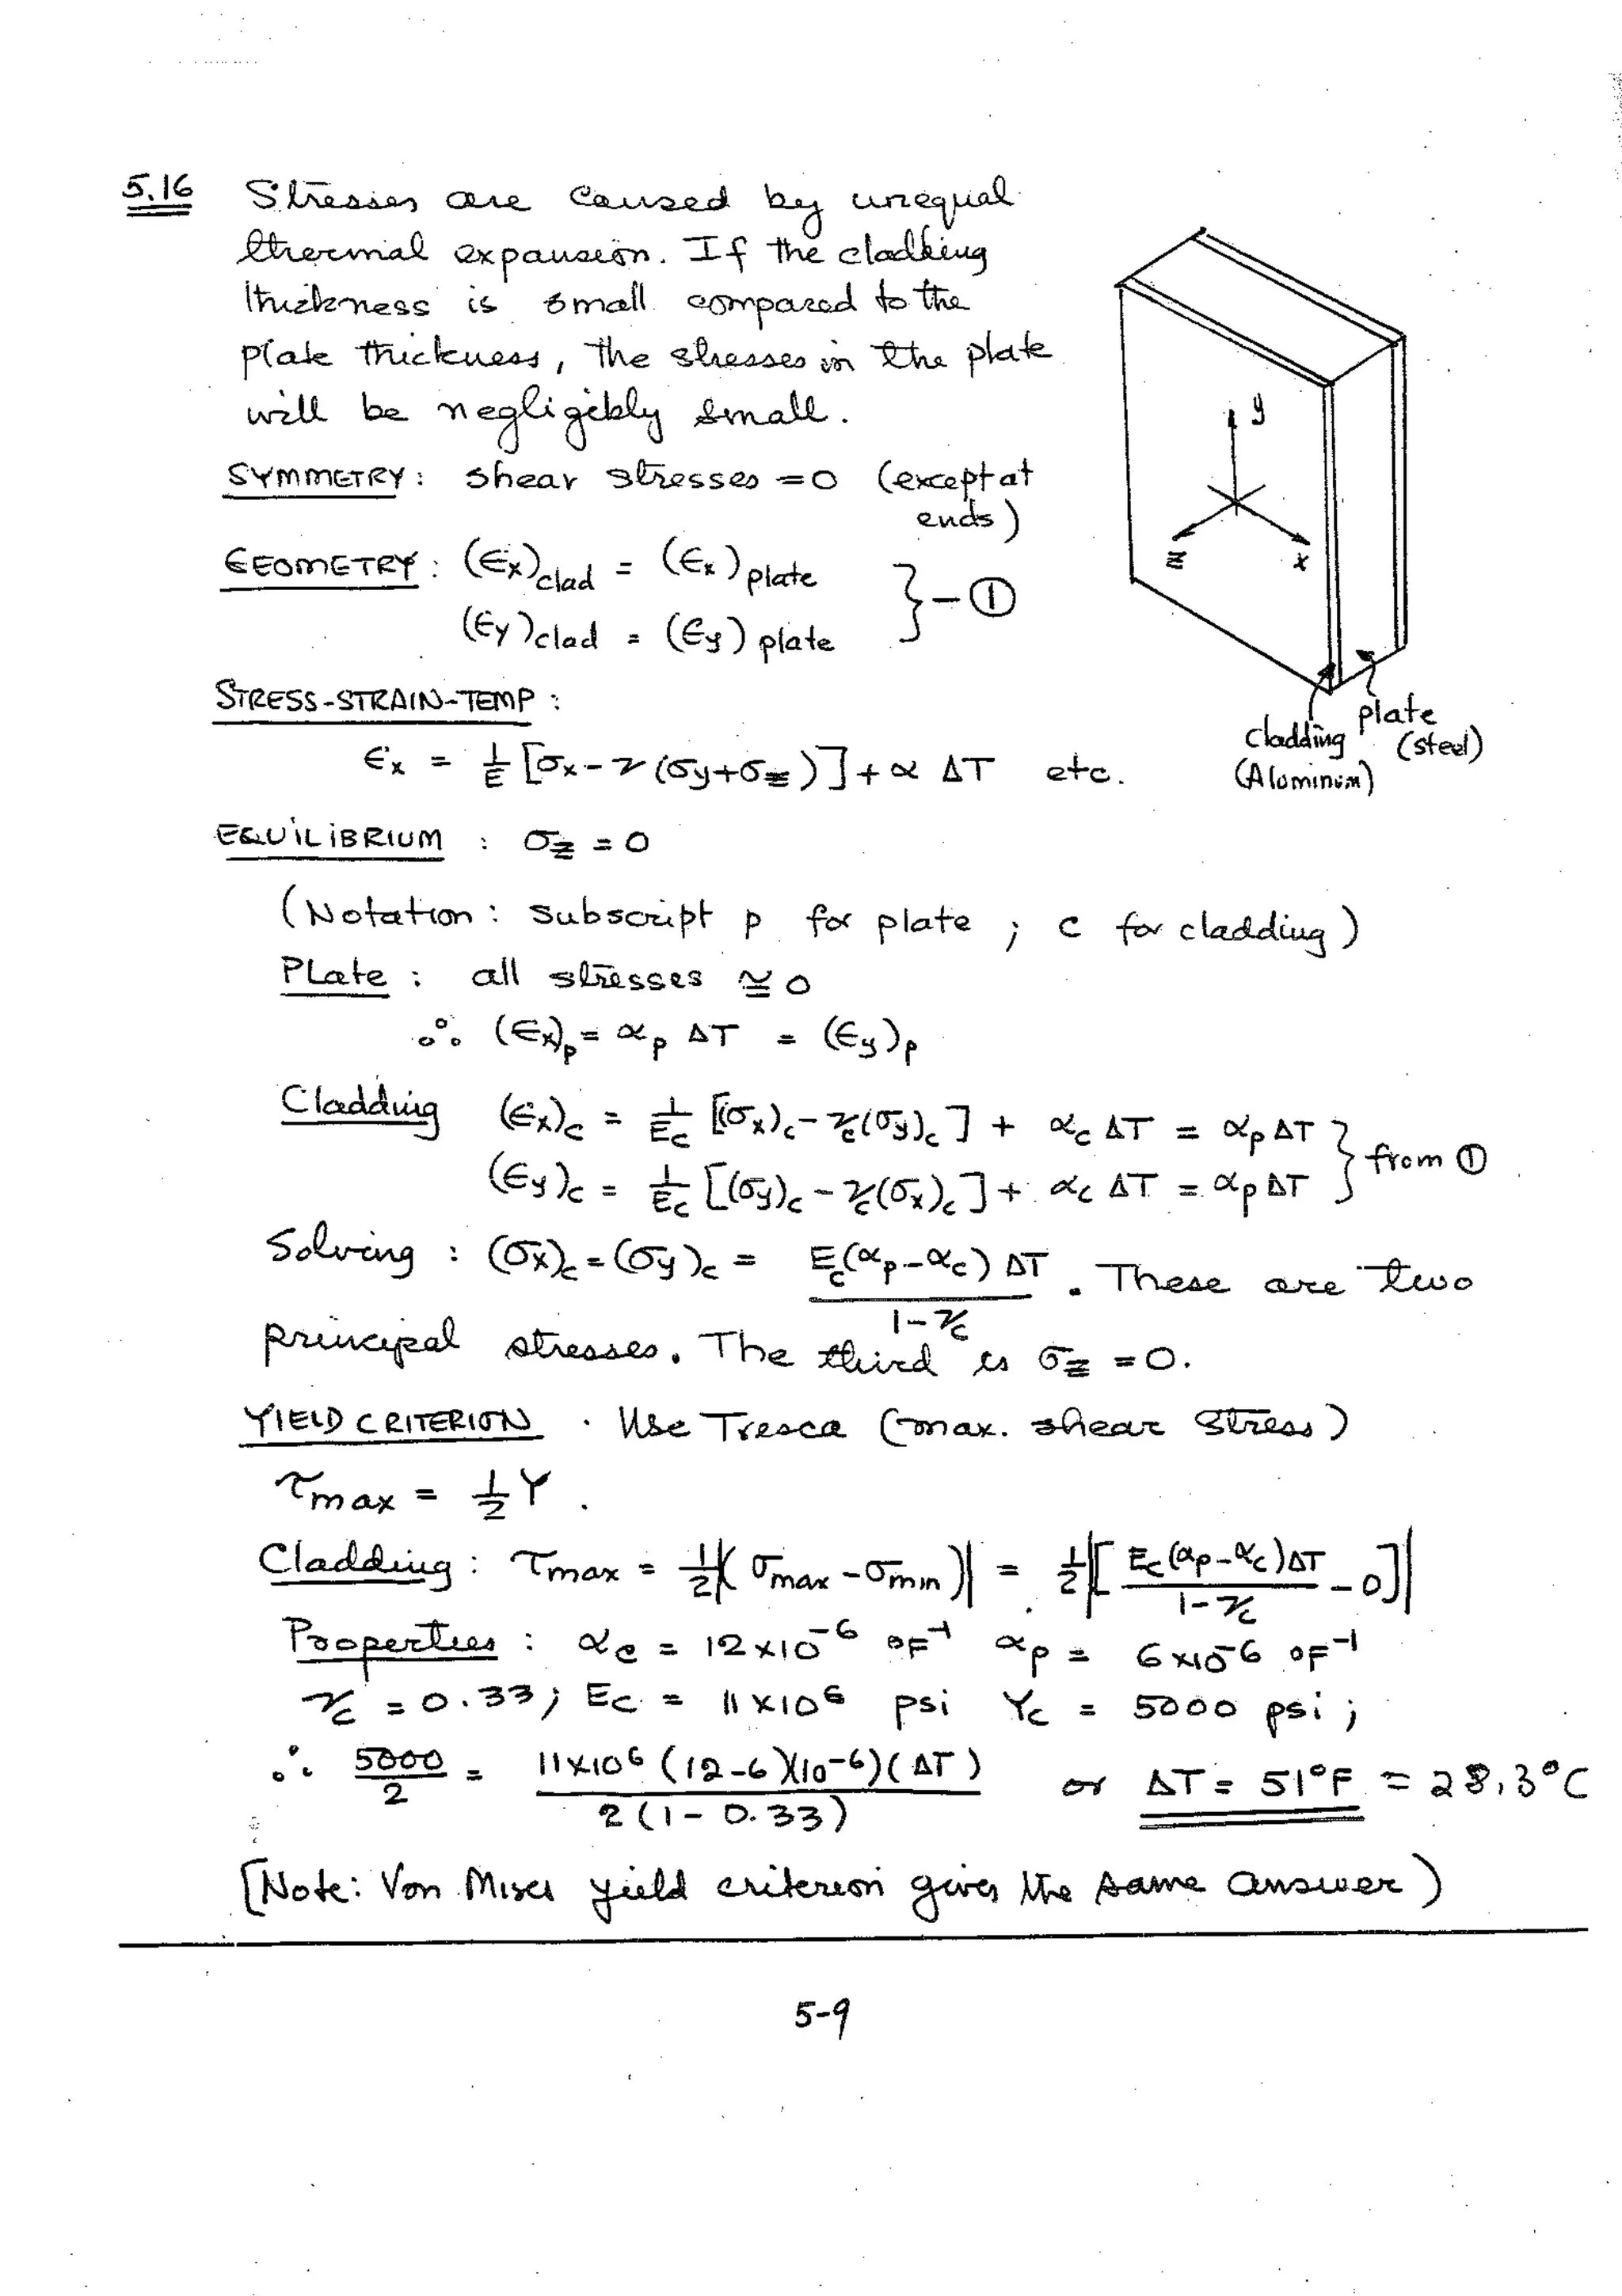 5.16 Stresses are caused by unequal
thermal expansion. If the cladding
thickness is small compared to the
plate thickness, the stresses in the plate
will be negligibly small.
SYMMETRY: shear stresses = 0 (except at
ends)
GEOMETRY: (ϵx)clad = (ϵx)plate
(ϵy)clad = (ϵy)plate } - ①
y
z
x
cladding
(Aluminum)
plate
(steel)
STRESS-STRAIN-TEMP :
ϵx = 1/E [σx - ν(σy+σz)] + α ΔT etc.
EQUILIBRIUM : σz = 0
(Notation: subscript p for plate ; c for cladding)
PLate : all stresses ≅ 0
∴ (ϵx)p = αp ΔT = (ϵy)p
Cladding (ϵx)c = 1/Ec [(σx)c - νc(σy)c] + αc ΔT = αp ΔT
(ϵy)c = 1/Ec [(σy)c - νc(σx)c] + αc ΔT = αp ΔT } from ①
Solving : (σx)c = (σy)c = Ec(αp-αc) ΔT / 1-νc . These are two
principal stresses. The third is σz = 0.
YIELD CRITERION . Use Tresca (max. shear stress)
τmax = 1/2 Y .
Cladding : τmax = 1/2 |(σmax - σmin)| = 1/2 |[Ec(αp-αc)ΔT / 1-νc - 0]|
Properties : αc = 12x10^-6 °F^-1 αp = 6x10^-6 °F^-1
νc = 0.33; Ec = 11x10^6 psi Yc = 5000 psi ;
∴ 5000/2 = 11x10^6 (12-6)(10^-6)(ΔT) / 2(1-0.33) or ΔT = 51°F = 28.3°C
[Note: Von Mises yield criterion gives the same answer)
5-9